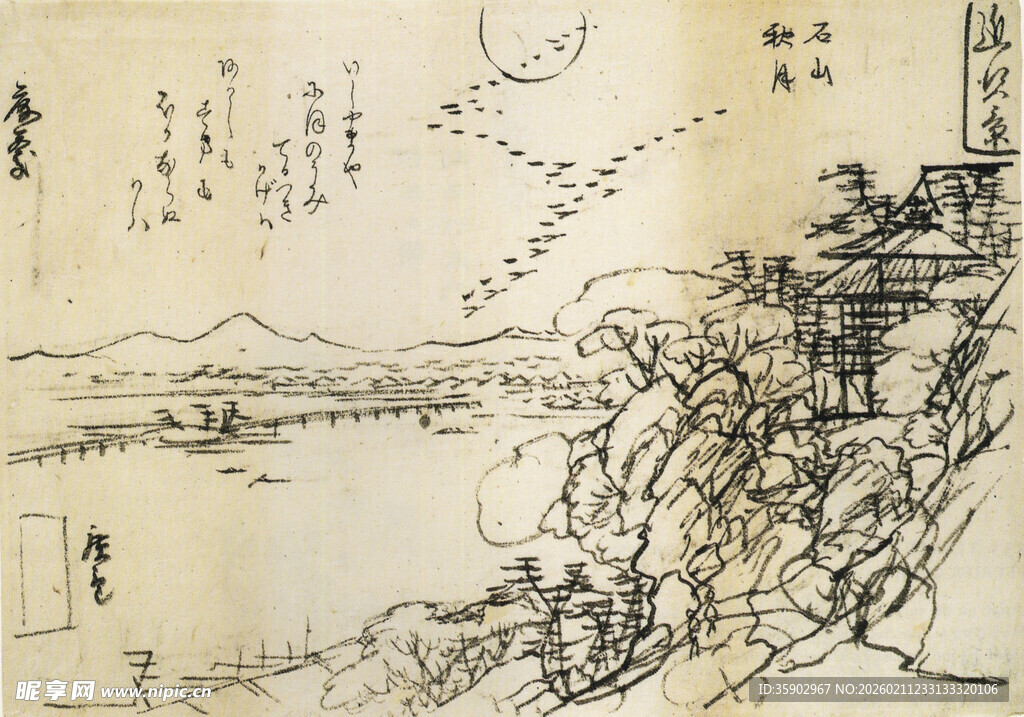 近江八景
石山
秋月
いしやまや
にほのうみ
てるつき
かげハ
あかしも
すまも
ほかならぬ
かハ
昵享网 www.nipic.cn
ID:35902967 NO:20260211233133320106